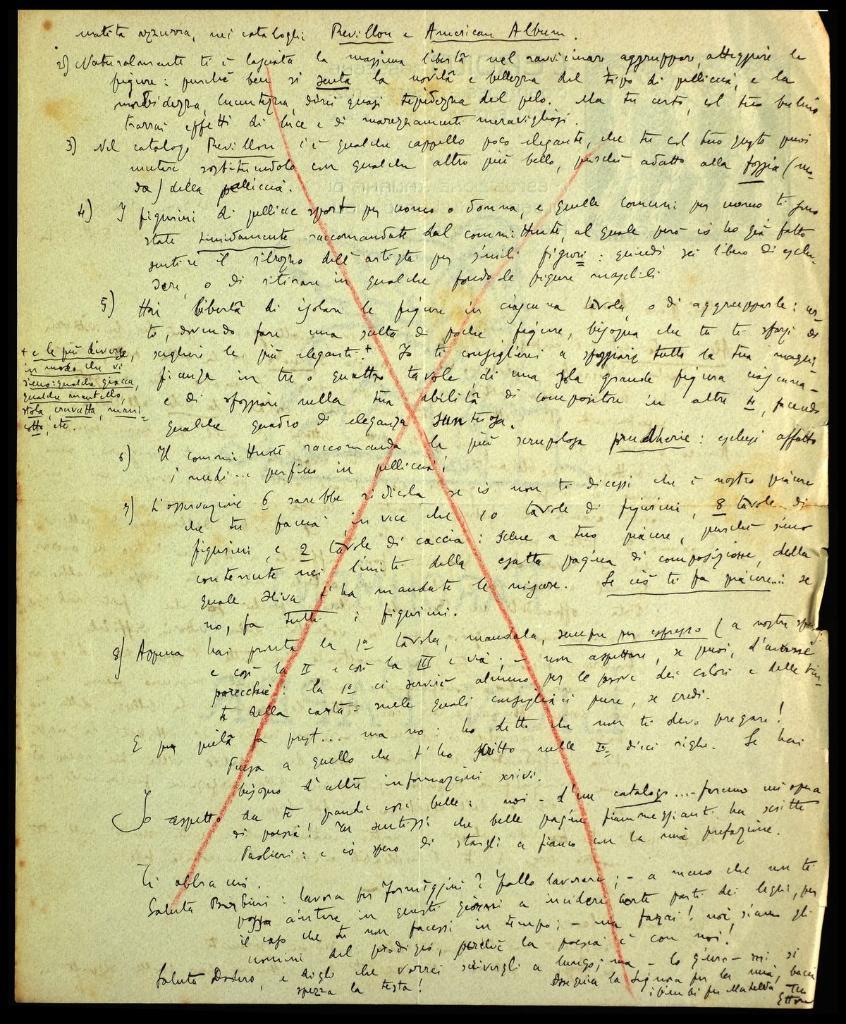 matita azzurra, nei cataloghi Revillon e American Album.
2) Naturalmente ti è lasciata la massima libertà nel ravvicinare, aggruppare, atteggiare le
figure: purché ben si senta la novità e bellezza del tipo di pelliccia, e la
morbidezza, lucentezza direi quasi tepidezza del pelo. Ma tu certo, col tuo bulino
trarrai effetti di luce e di marezzamento meravigliosi.
3) Nel catalogo Revillon c'è qualche cappello poco elegante, che tu col tuo gusto puoi
mutare sostituendolo con qualche altro più bello, purché adatto alla foggia (mo-
da) della pelliccia.
4) I figurini di pellicce sport per uomo o donna, e quelle comuni per uomo ti sono
state raccomandate dal committente, al quale però io ho già fatto
sentire il ribrezzo dell'artista per simili figuri: quindi sei libero di esclu-
dere, o di stirare in qualche fondo le figure maschili.
5) Hai libertà di isolare le figure in ciascuna tavola, o di aggrupparle: cer-
to, dovendo fare una scelta di poche figure, bisogna che tu ti sforzi di
scegliere le più eleganti.+ Io ti consiglierei a sfoggiare tutta la tua magni-
ficenza in tre o quattro tavole, di una sola grande figura ciascuna
e di sfoggiare nella tua abilità di compositore in altre 4, facendo
qualche quadro di eleganza suntuosa.
+ e le più diverse,
in modo che vi
sieno: qualche giacca,
qualche mantello,
stola, cravatta, mani-
cotto, etc.
6) Il committente raccomanda la più scrupolosa pruderie: esclusi affatto
i nudi... perfino in pelliccia!
7) L'osservazione 6 sarebbe ridicola se io non ti dicessi che è nostro piacere
che tu faccia invece che 10 tavole di figurini, 8 tavole di
figurini, e 2 tavole di caccia: scene a tuo piacere, purché sieno
contenute nei limiti della esatta pagina di composizione, della
quale t'ha mandate le misure. Se ciò ti fa piacere: se
no, fa tutti i figurini.
8) Appena hai pronta la 1ª tavola, mandala, sempre per espresso (a nostre spese)
e così la II e così la III e via; - non aspettare, se puoi, d'averne
parecchie: la 1ª ci servirà almeno per le prove dei colori e delle tin-
te della carta - sulle quali consigliaci pure, se credi.
E per pietà fa prest... ma no: ho detto che non te devo pregare!
a quello che t'ho scritto nelle dieci righe. Se hai
bisogno d'altre informazioni scrivi.
Io aspetto da te grandi cose belle: noi - d'un catalogo... faremo un'opera
di poesia! che belle pagine fiammeggianti ha scritte
Paolieri: e io spero di stargli a fianco con la mia prefazione.
Ti abbraccio.
Saluta Barbieri: lavora per Formiggini? Fallo lavorare; - a meno che non te
possa aiutare in questi giorni a incidere certe parti dei legni, per
il caso che tu non facessi in tempo; - ma farai! noi siamo gli
uomini del prodigio, perché la poesia è con noi.
Saluta Dodero, e digli che vorrei scrivergli a lungo; ma - lo giuro - mi si
spezza la testa! Ossequia la Signora per la mia, bacia
i bimbi per Matelda Tuo
Ettore